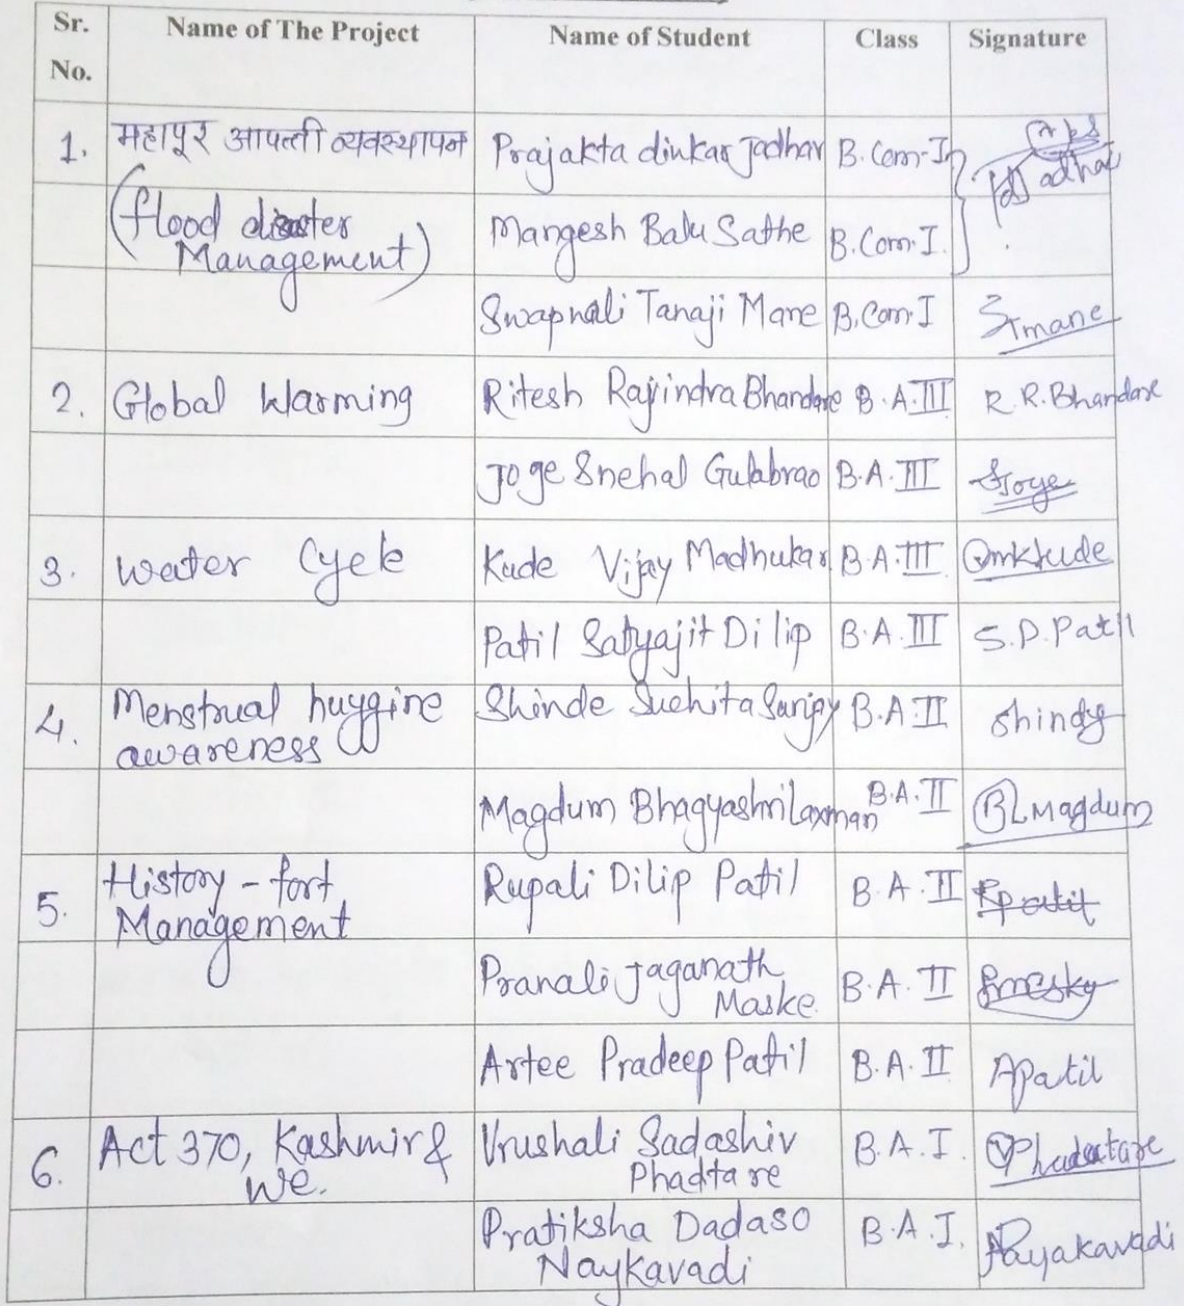 Sr. No. Name of The Project Name of Student Class Signature
1. महापूर आपत्ती व्यवस्थापन Prajakta dinkar Jadhav B. Com-I
(flood disaster Management) Mangesh Balu Sathe B.Com.I
Swapnali Tanaji Mane B.Com.I Smane
2. Global Warming Ritesh Rajindra Bhandare B.A.III R.R.Bhandare
Joge Snehal Gulabrao B.A.III SJoge
3. Water Cycle Kude Vijay Madhukar B.A.III
Patil Satyajit Dilip B.A.III S.D.Patil
4. Menstrual huygine awareness Shinde Suchita Sanjay B.A.II
Magdum Bhagyashri Laxman B.A.II BLMagdum
5. History - fort Management Rupali Dilip Patil B.A.II Rpatil
Pranali Jaganath Maske B.A.II
Artee Pradeep Patil B.A.II APatil
6. Act 370, Kashmir & We. Vrushali Sadashiv Phadtare B.A.I. VPhadatare
Pratiksha Dadaso Naykavadi B.A.I. PNayakavadi